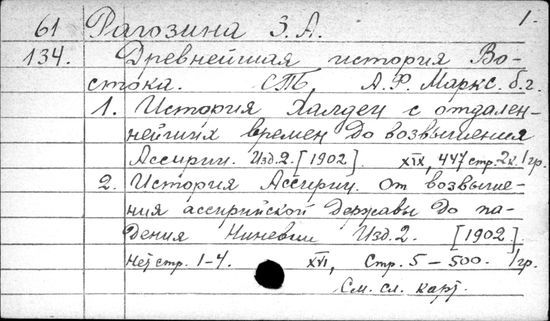 1.
61 Рагозина З. А.
134. Древнейшая история Во-
стока. СПб, А. Ф. Маркс. б. г.
1. История Халдеи с отдален-
нейших времен до возвышения
Ассирии. Изд. 2. [1902] XIX, 447 стр. 2 к. 1 гр.
2. История Ассирии. от возвыше-
ния ассирийской державы до па-
дения Ниневии Изд. 2. [1902]
нет стр. 1-4. XVI, Стр. 5-500. 1 гр.
См. сл. карт.